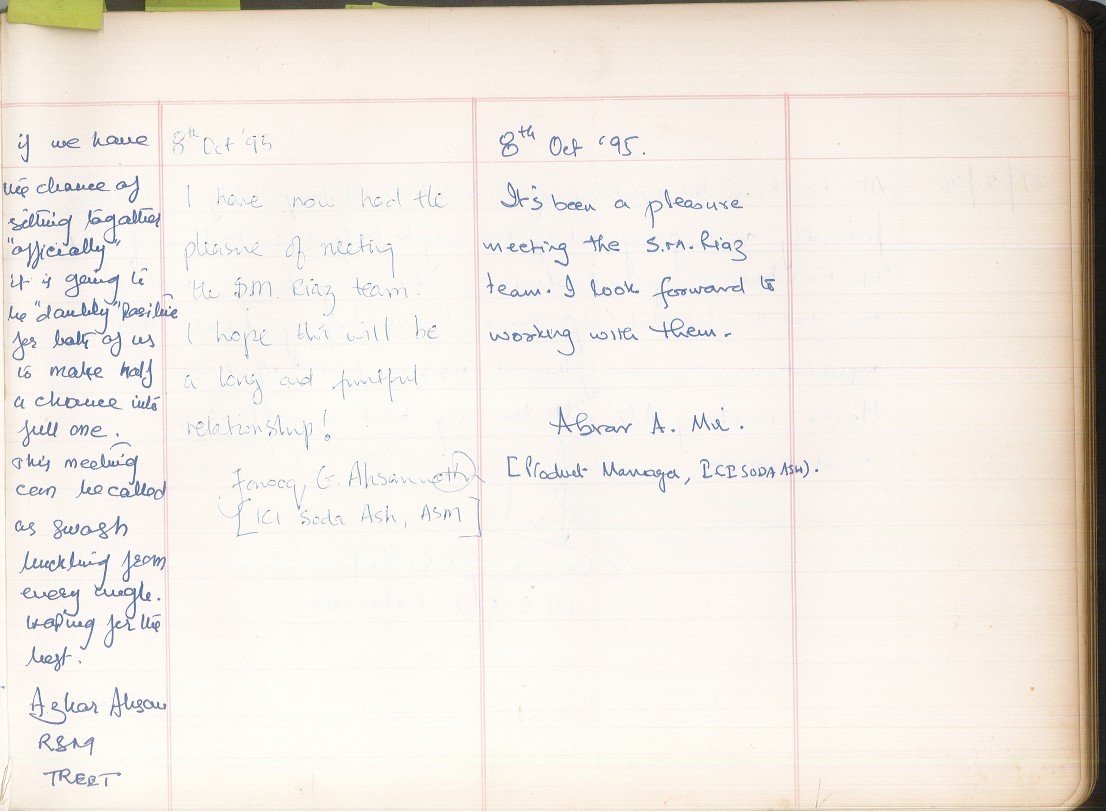 if we have
the chance of
sitting togather
"officially"
it is going to
be "doubly" Positive
for both of us
to make half
a chance into
full one.
This meeting
can be called
as swash
buckling from
every angle.
Hoping for the
best.
Azhar Ahsan
RSM
TREET
8th Oct '95
I have now had the
pleasure of meeting
the S.M. Riaz team.
I hope this will be
a long and fruitful
relationship!
Farooq, G. Ahsan
[ICI Soda Ash, ASM]
8th Oct '95.
It's been a pleasure
meeting the S.M. Riaz
team. I look forward to
working with them.
Abrar A. Mir.
[Product Manager, ICI SODA ASH).